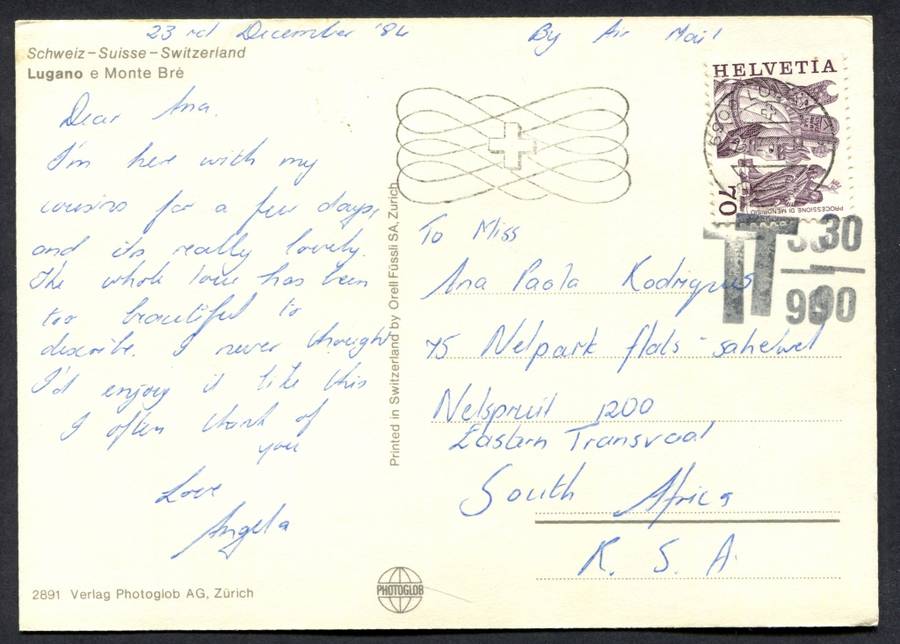 23rd December '84
By Air Mail
Schweiz – Suisse – Switzerland
Lugano e Monte Brè
Dear Ana.
I'm here with my
cousins for a few days,
and its really lovely.
The whole tour has been
too beautiful to
describe. I never thought
I'd enjoy it like this
I often think of
you
Love
Angela
2891 Verlag Photoglob AG, Zürich
Printed in Switzerland by Orell Füssli SA, Zürich
PHOTOGLOB
HELVETIA
70
PROCESSIONE DI MENDRISIO
6901
TT
30
90
To Miss
Ana Paola Rodrigues
45 Nelpark flats -
Nelspruit 1200
Eastern Transvaal
South Africa
R. S. A.